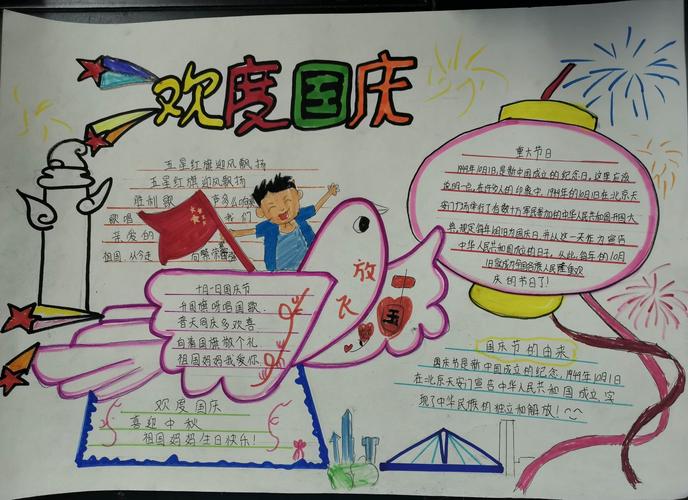 欢度国庆
五星红旗迎风飘扬
五星红旗迎风飘扬
胜利歌
歌唱
我们
亲爱的
祖国,从今走向繁荣
十月一日国庆节
升国旗呀唱国歌
普天同庆多欢喜
向着国旗敬个礼
祖国妈妈我爱你
放飞
欢度国庆
喜迎中秋
祖国妈妈生日快乐!
重大节日
1949年10月1日是新中国成立的纪念日,这里应该
说明一点,在许多人的印象中,1949年的10月1日在北京天
安门广场举行了有数十万军民参加的中华人民共和国开国大
典
中华人民共和国成立的日子,从此,每年的10月
1日就成为全国各族人民隆重欢
庆的节日了!
国庆节的由来
国庆节是新中国成立的纪念,1949年10月1日
在北京天安门宣告中华人民共和国成立,实
现了中华民族的独立和解放!